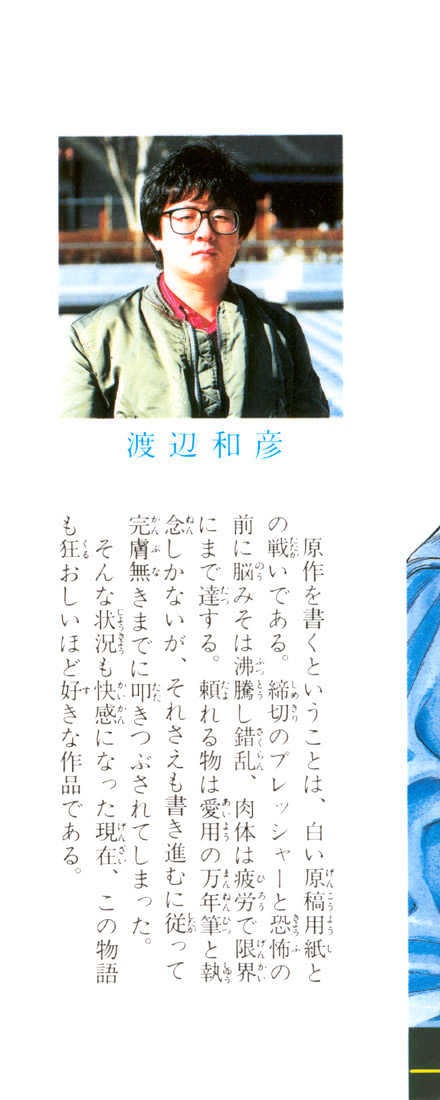 渡辺和彦
原作を書くということは、白い原稿用紙と
の戦いである。締切のプレッシャーと恐怖の
前に脳みそは沸騰し錯乱、肉体は疲労で限界
にまで達する。頼れる物は愛用の万年筆と執
念しかないが、それさえも書き進むに従って
完膚無きまでに叩きつぶされてしまった。
そんな状況も快感になった現在、この物語
も狂おしいほど好きな作品である。